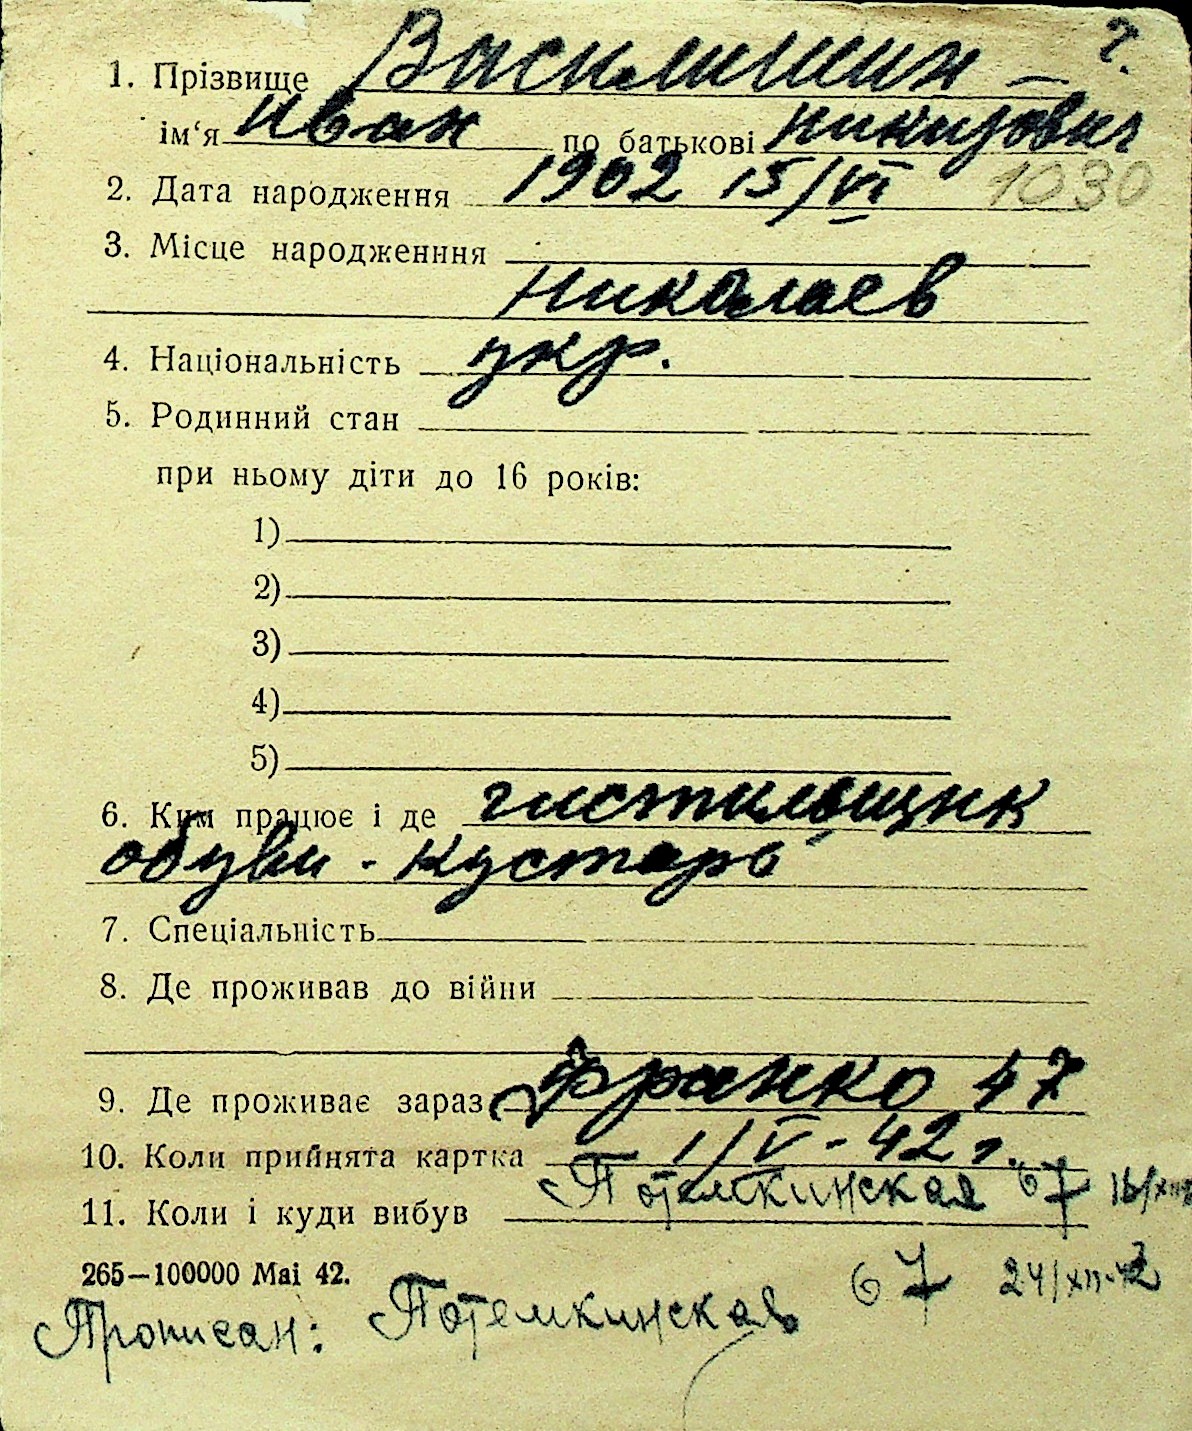 1. Прізвище Василишин — ?.
ім‘я Иван по батькові Никитович
2. Дата народження 1902 15/VI 1030
3. Місце народженння
Николаев
4. Національність укр.
5. Родинний стан
при ньому діти до 16 років:
1)
2)
3)
4)
5)
6. Ким працює і де чистильщик
обуви - кустарь
7. Спеціальність
8. Де проживав до війни
9. Де проживає зараз Франко 47
10. Коли прийнята картка 1/V - 42 г.
Потемкинская 67 16/XII
11. Коли і куди вибув
265—100000 Mai 42.
Прописан: Потемкинская 67 24/XII-42